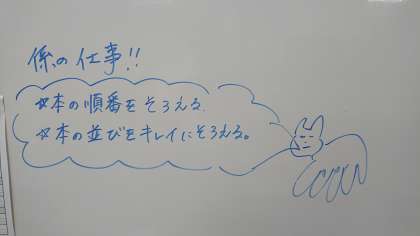 係の仕事!!
☆本の順番をそろえる.
☆本の並びをキレイにそろえる。